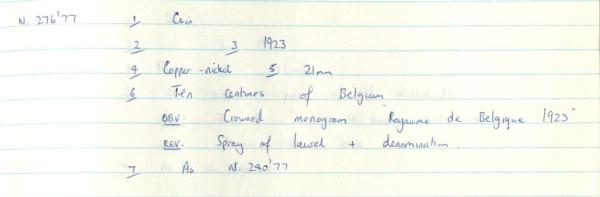 N. 276'77 1 Coin
2 3 1923
4 Copper-nickel 5 21mm
6 Ten centimes of Belgium
OBV: Crowned monogram "Royaume de Belgique 1923"
REV. Spray of laurel + denomination.
7 As N. 240'77